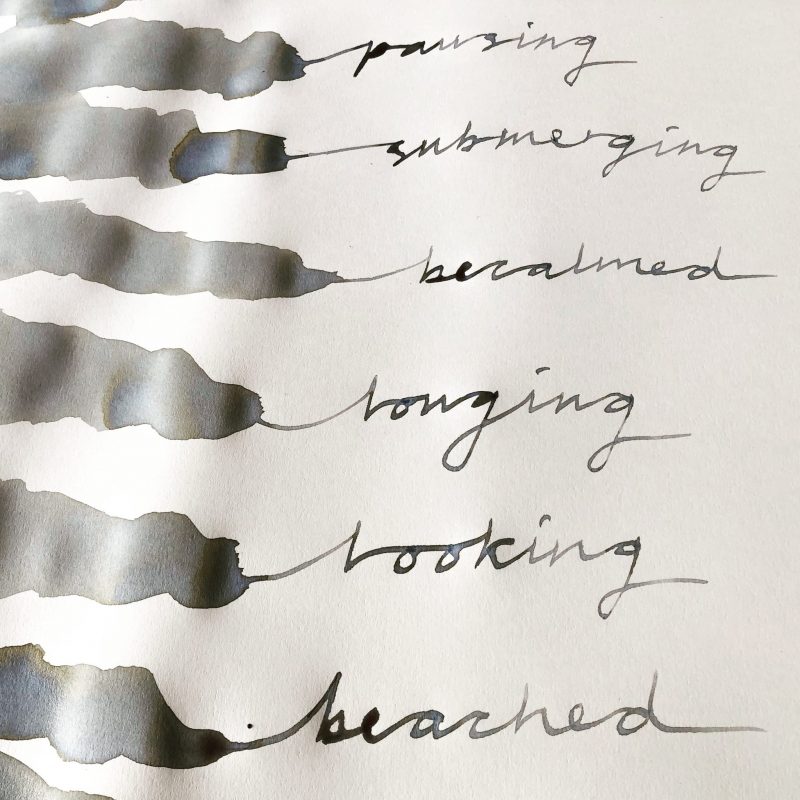 pausing
submerging
becalmed
longing
looking
beached